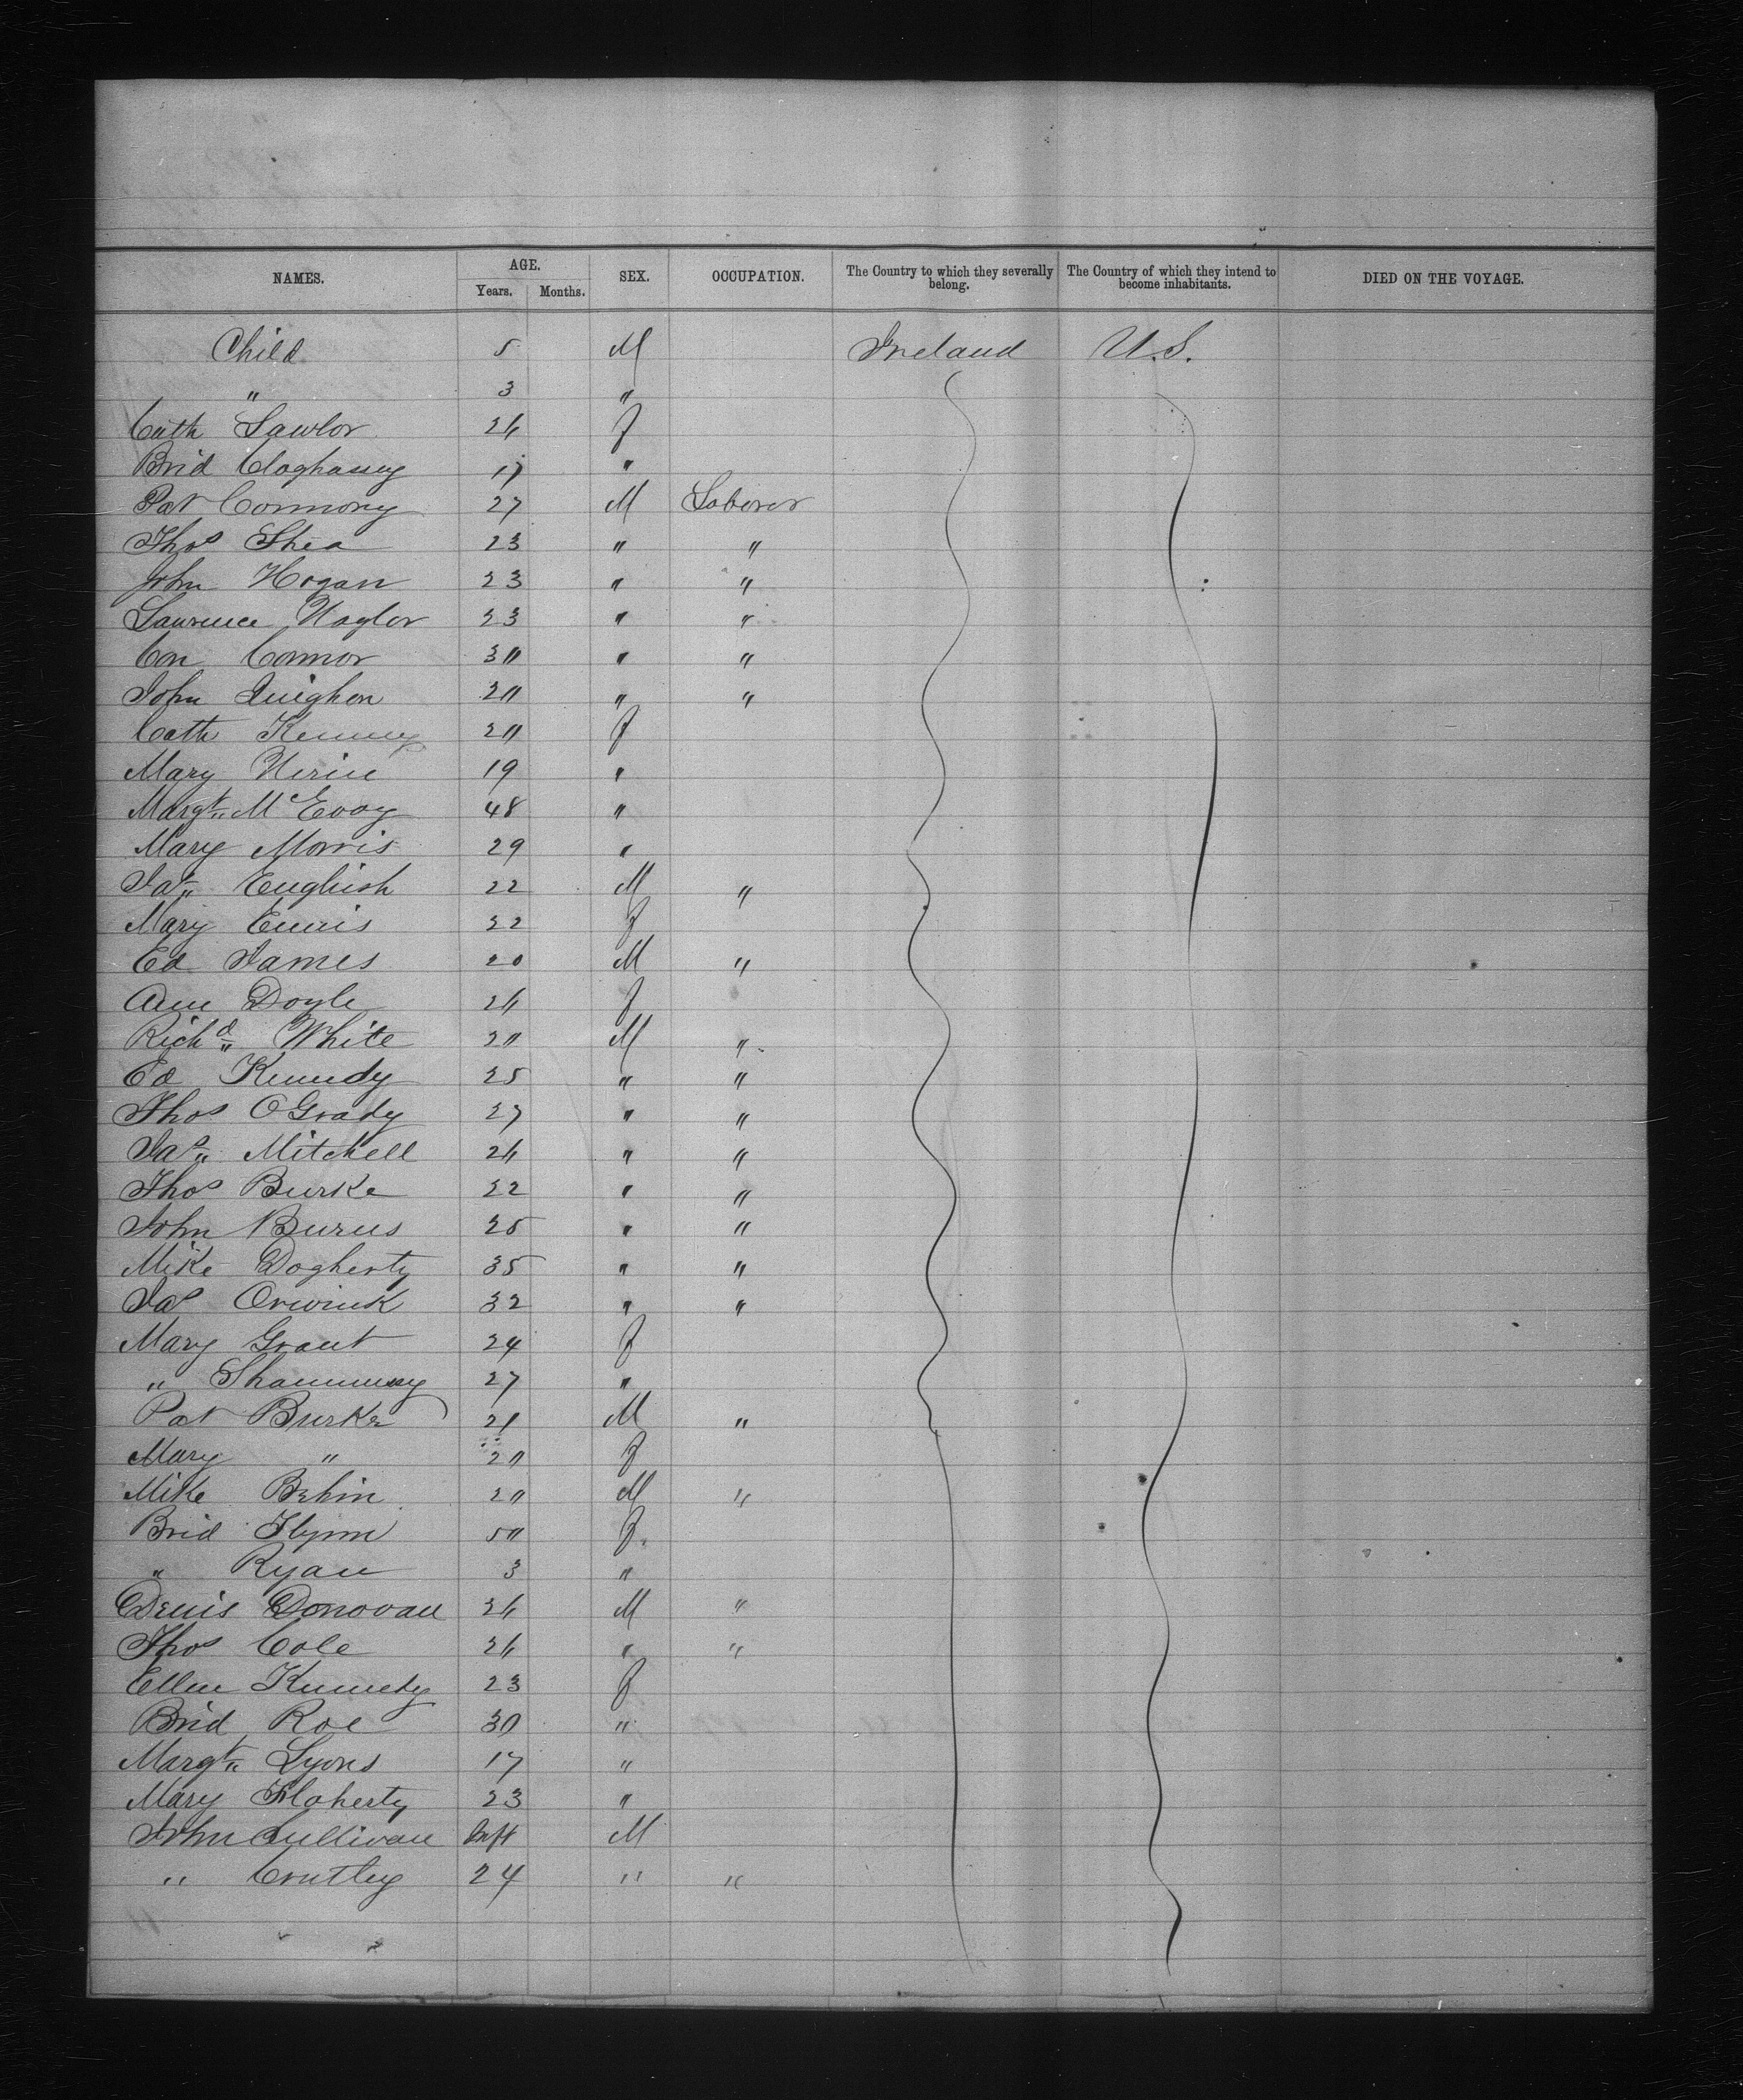 NAMES. AGE. SEX. OCCUPATION. The Country to which they severally belong. The Country of which they intend to become inhabitants. DIED ON THE VOYAGE.
Years. Months.
Child 5 M Ireland U.S.
" 3 "
Cath Lawlor 24 f
Brid 17 "
Pat 27 M Laborer
Thos Shea 23 " "
John Hogan 23 " "
Laurence Naylor 23 " "
Con Connor 30 " "
John 20 " "
Cath Kenny 20 f
Mary 19 "
Margt McEvoy 48 "
Mary Morris 29 "
Pat English 22 M "
Mary Ennis 22 f
Ed James 20 M "
Ann Doyle 24 f
Richd White 20 M "
Ed Kennedy 25 " "
Thos O Grady 27 " "
Jas Mitchell 24 " "
Thos Burke 22 " "
John Burns 25 " "
Mike Dogherty 35 " "
Jas 32 " "
Mary Grant 24 f
" 27 "
Pat Burke 21 M "
Mary " 20 f
Mike Behin 20 M "
Brid Flynn 50 f
" Ryan 3 "
Denis Donovan 24 M "
Thos Cole 24 " "
Ellen Kennedy 23 f
Brid Roe 30 "
Margt Lyons 17 "
Mary Flaherty 23 "
John Sullivan Inft M
" 24 " "